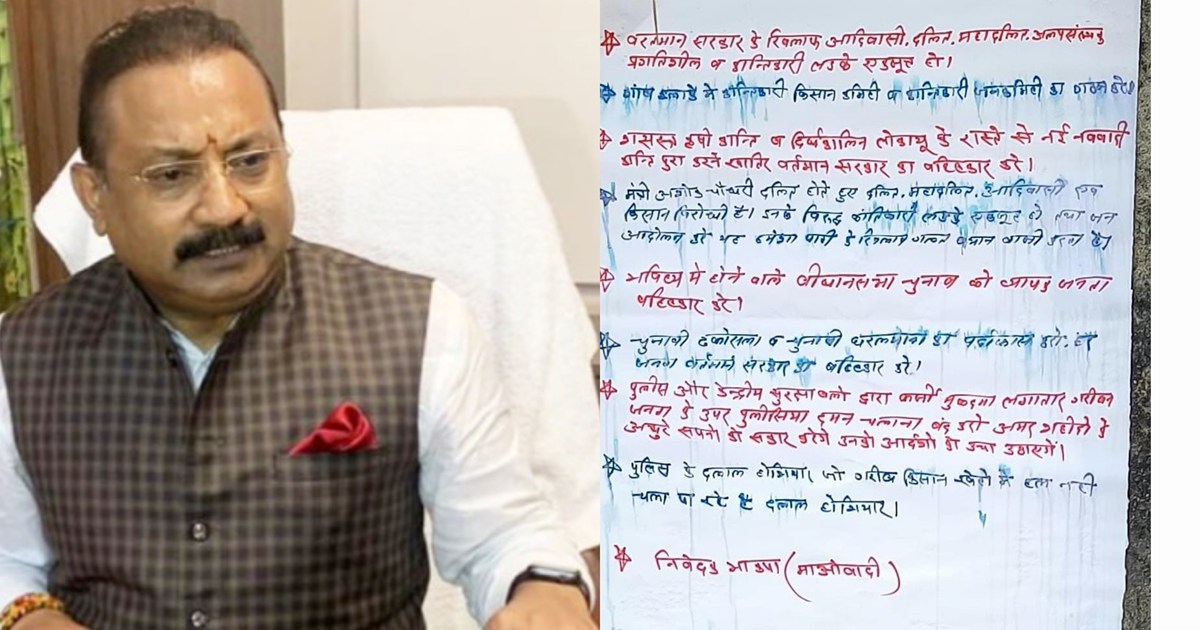 वरतमान सरकार के खिलाफ आदिवासी, दलित, महादलित, अल्पसंख्यक
प्रगतिशील व क्रान्तिकारी लडाके एकजूट हो।
गांव इलाके में क्रान्तिकारी किसान कमिटी व क्रान्तिकारी जनकमिटी का गठन करे।
सशस्त्र कृषी क्रान्ति व दिर्घकालिन लोकयुद्ध के रास्ते से नई नववादी
क्रान्ति पुरा करने खातिर वर्तमान सरकार का बहिष्कार करे।
मंत्री अशोक चौधरी दलित होते हुए दलित, महादलित, आदिवासी एवं
किसान विरोधी है। उनके विरुद्ध क्रांतिकारी लडाके एकजूट हो तथा जन
आंदोलन करे यह हमेशा पार्टी के खिलाफ गलत बयान बाजी करता है।
भविष्य में होने वाले वीधानसभा चुनाव को व्यापक जनता
बहिष्कार करे।
चुनावी ढकोसला व चुनावी का पर्दाफास करो,
जनता वर्तमान सरकार का बहिष्कार करे।
पुलीस और केन्द्रीय सुरक्षा बलो द्वारा फर्जी मुकदमा लगातार गरीब
जनता के उपर पुलीसिया दमन चलाना बंद करो अमर शहीदो के
अधुरे सपनो को साकार करेगे उनके आदर्शो को उंचा उठाएगें।
पुलिस के दलाल होशियार जो गरीब किसान खेतो में हल नही
चला पा रहे है दलाल होशियार।
निवेदक भाकपा (माओवादी)